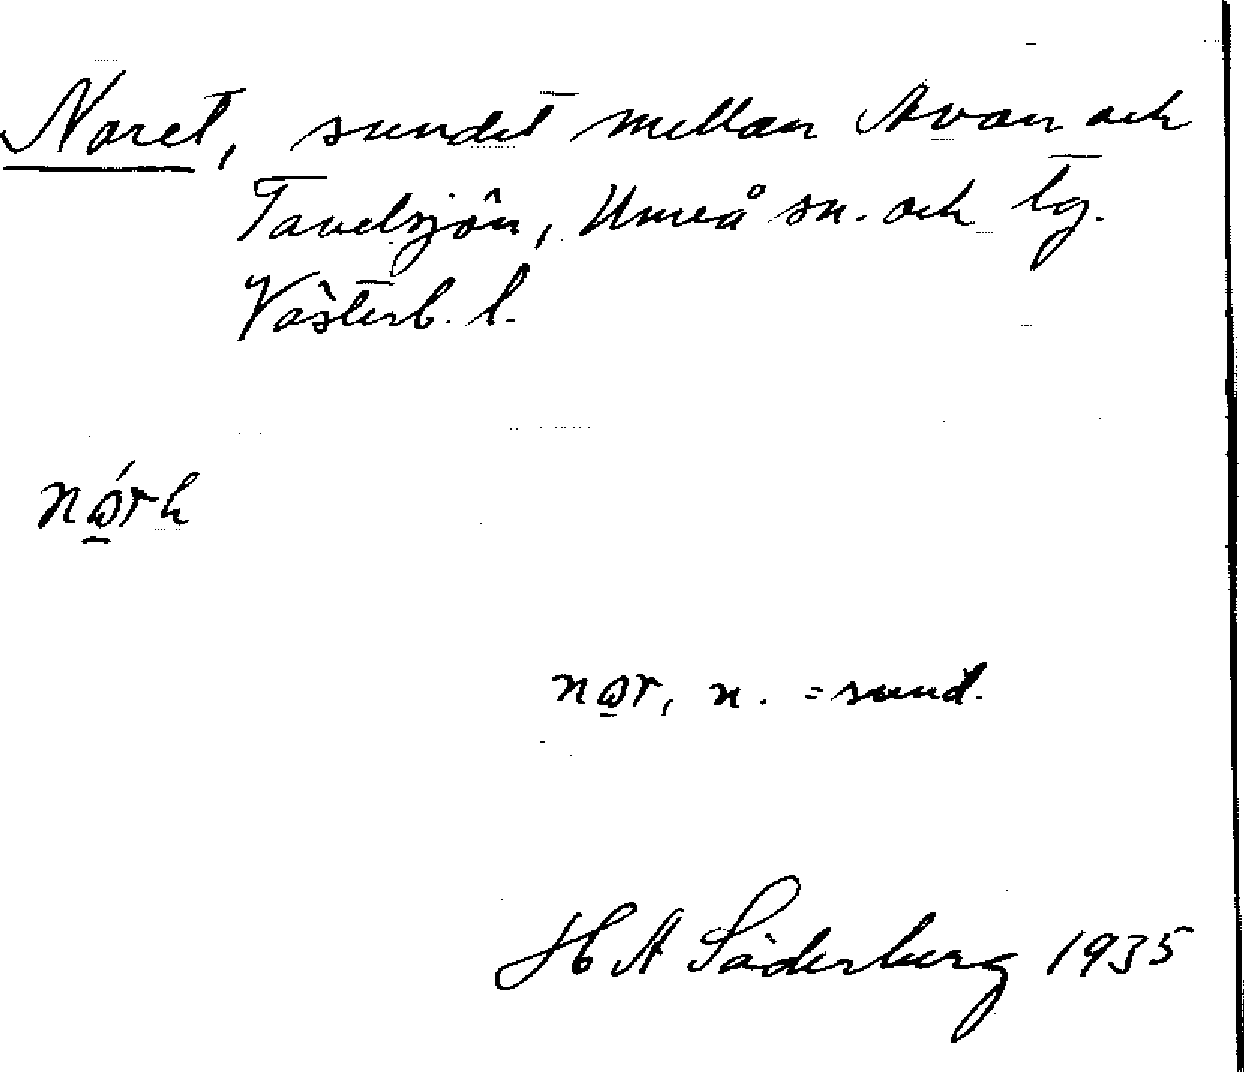 Noret, sundet mellan Avan och
Tavelsjön, Umeå sn. och tg.
Västerb. l.
n, n. = sund.
H A Söderberg 1935